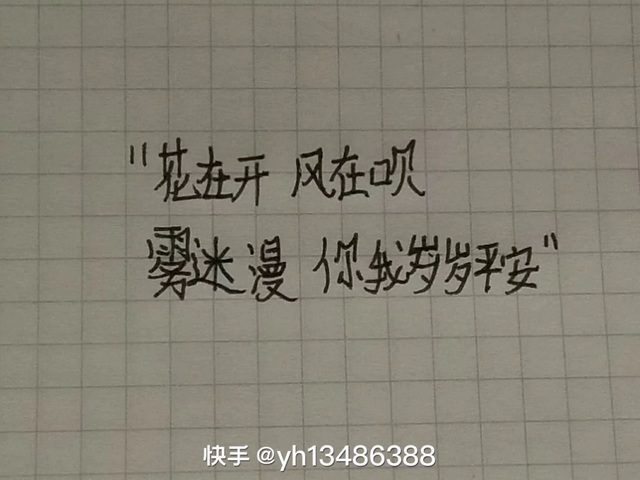 "花在开 风在吹
雾迷漫 你我岁岁平安"
快手 @yh13486388